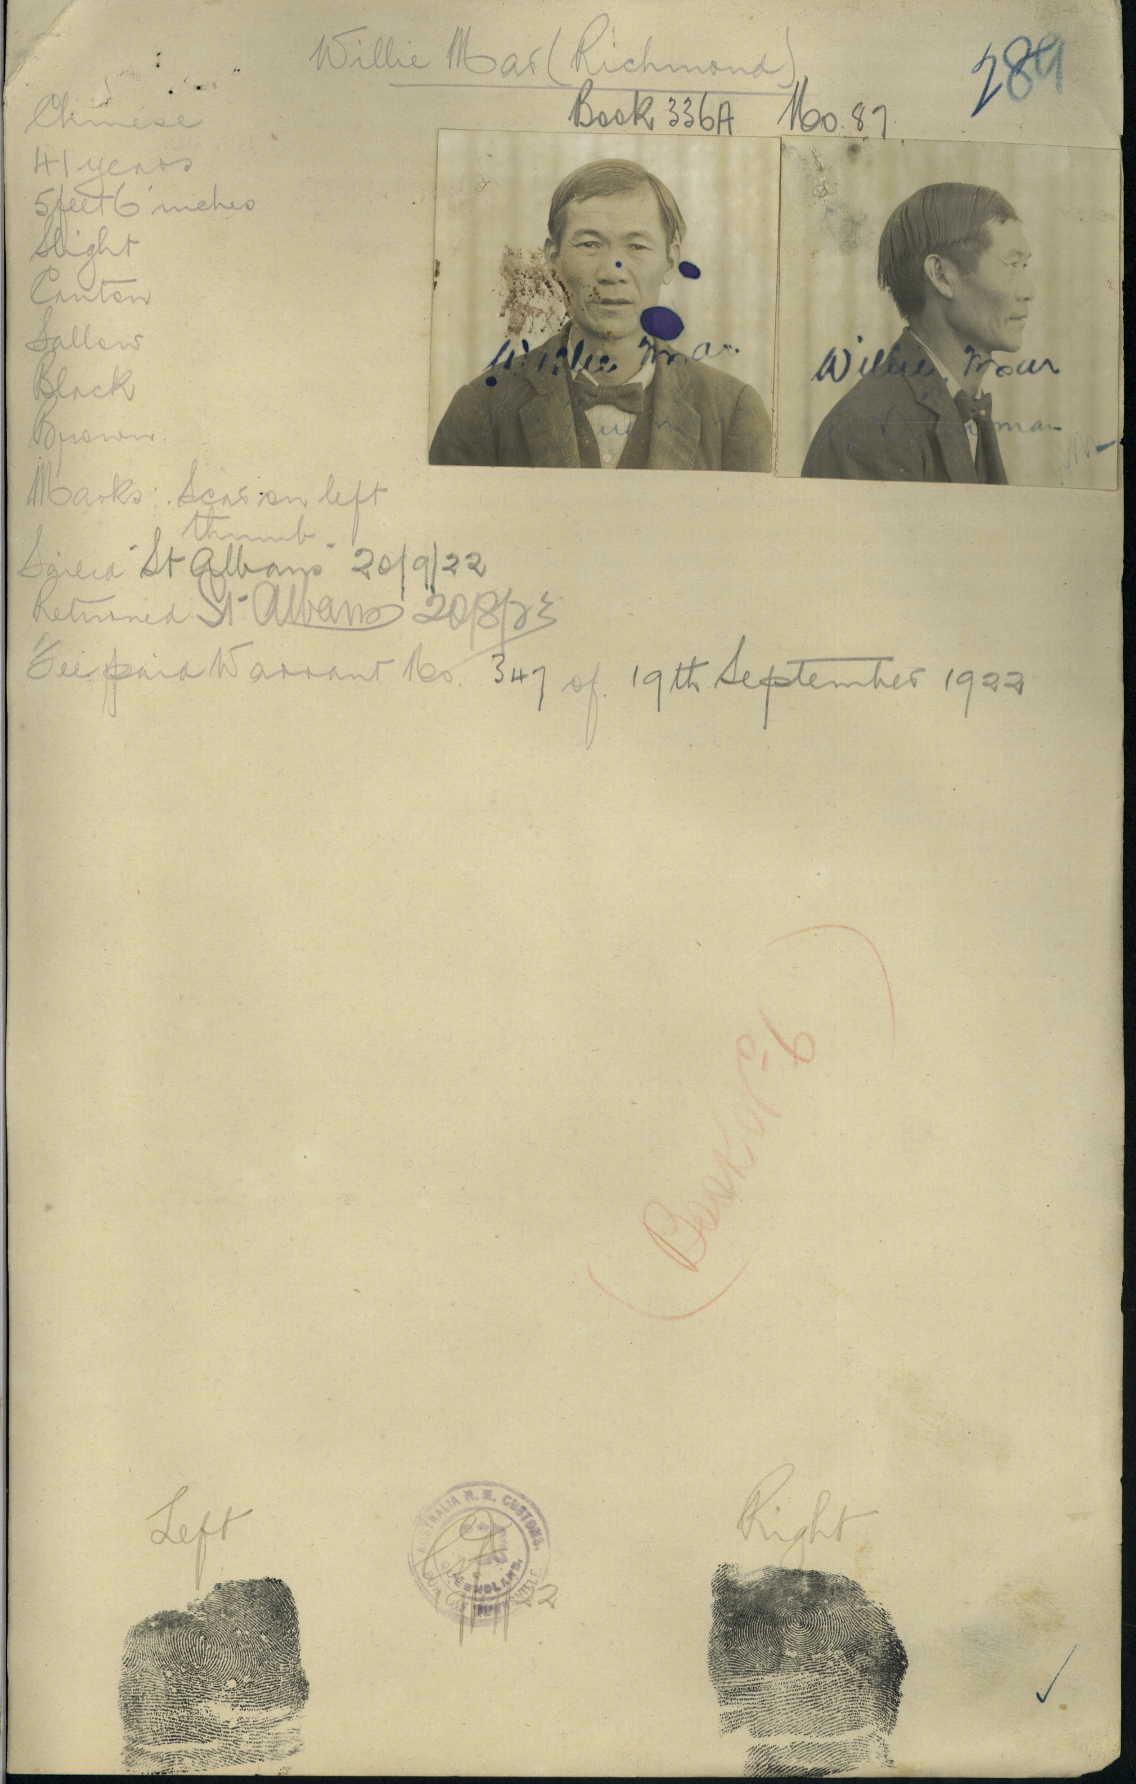 Willie Mar (Richmond)
289
Book 336A No. 87
Chinese
41 years
5 feet 6 inches
Slight
Canton
Sallow
Black
Brown
Willie Mar
Willie Mar
Marks: Scar on left
thumb
Sailed "St Albans" 20/9/22
Returned St Albans 20/8/23
Fee paid Warrant No. 347 of 19th September 1922
(Book No 6)
Left
Right
AUSTRALIA H. M. CUSTOMS.
QUEENSLAND.